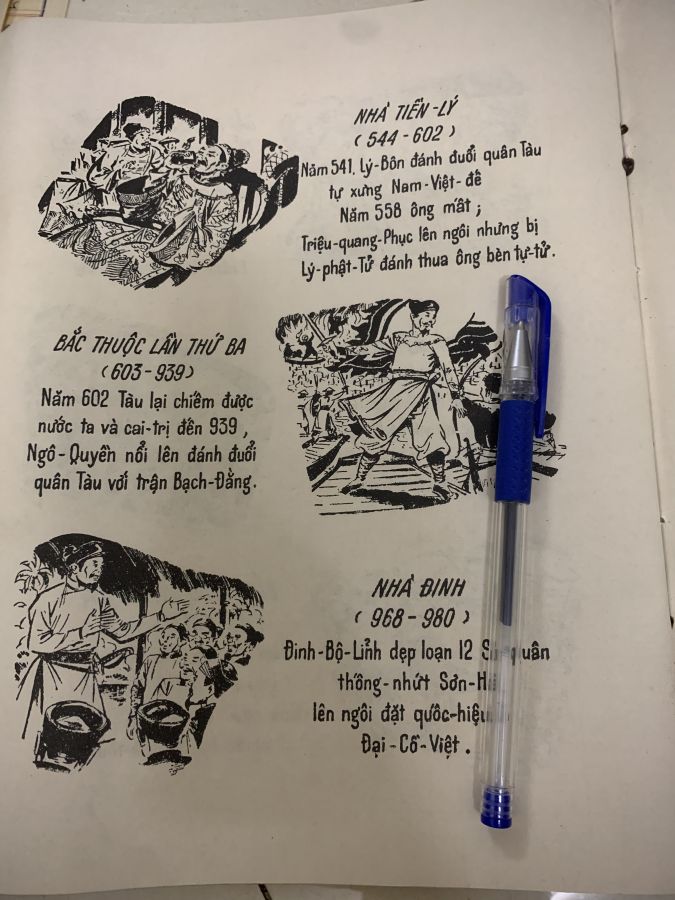 NHÀ TIỀN-LÝ
(544-602)
Năm 541, Lý-Bôn đánh đuổi quân Tàu
tự xưng Nam-Việt-đế
Năm 558 ông mất;
Triệu-quang-Phục lên ngôi nhưng bị
Lý-phật-Tử đánh thua ông bèn tự-tử.
BẮC THUỘC LẦN THỨ BA
(603-939)
Năm 602 Tàu lại chiếm được
nước ta và cai-trị đến 939,
Ngô-Quyền nổi lên đánh đuổi
quân Tàu với trận Bạch-Đằng.
NHÀ ĐINH
(968-980)
Đinh-Bộ-Lĩnh dẹp loạn 12 quân
thống-nhứt
lên ngôi đặt quốc-hiệu
Đại-Cồ-Việt.